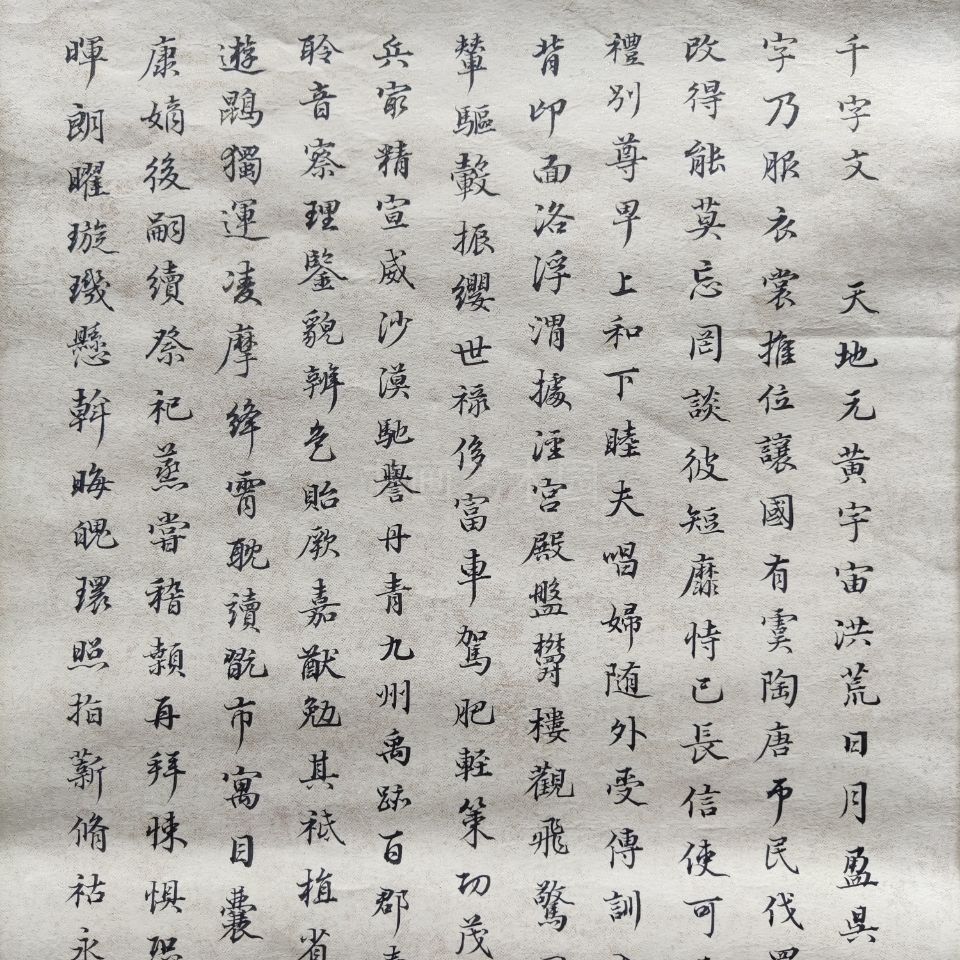 千字文 天地元黃宇宙洪荒日月盈昃
字乃服衣裳推位讓國有虞陶唐弔民伐罪
改得能莫忘罔談彼短靡恃己長信使可
禮別尊卑上和下睦夫唱婦随外受傅訓
背邙面洛浮渭據涇宮殿盤鬱樓觀飛驚
輦驅轂振纓世祿侈富車駕肥輕策功茂
兵最精宣威沙漠馳譽丹青九州禹跡百郡
聆音察理鑒貌辨色貽厥嘉猷勉其祗植省
遊鵾獨運凌摩絳霄耽讀翫市寓目囊
康嫡後嗣續祭祀蒸嘗稽顙再拜悚懼恐
暉朗曜璇璣懸斡晦魄環照指薪脩祜永